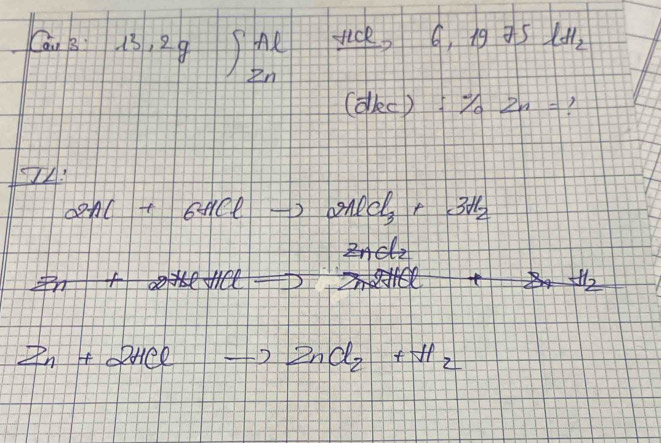 Câu 3: 13,2g { Al Zn HCl, 6,1975 l H₂
(đkc) : % Zn = ?
TL:
2Al + 6HCl → 2AlCl₃ + 3H₂
ZnCl₂
Zn + HCl → Zn2HCl + Zn H₂
Zn + 2HCl → ZnCl₂ + H₂